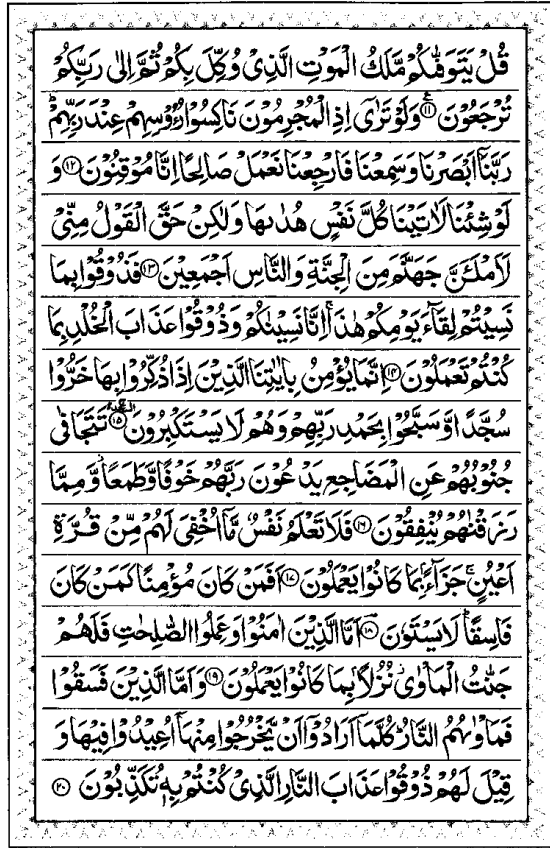 قُلْ يَتَوَفّٰىكُمْ مَّلَكُ الْمَوْتِ الَّذِىْ وُكِّلَ بِكُمْ ثُمَّ اِلٰى رَبِّكُمْ
تُرْجَعُوْنَ ﴿۱۱﴾ وَلَوْ تَرٰٓى اِذِ الْمُجْرِمُوْنَ نَاكِسُوْا رُءُوْسِهِمْ عِنْدَ رَبِّهِمْ ؕ
رَبَّنَاۤ اَبْصَرْنَا وَسَمِعْنَا فَارْجِعْنَا نَعْمَلْ صَالِحًا اِنَّا مُوْقِنُوْنَ ﴿۱۲﴾ وَ
لَوْ شِئْنَا لَاٰتَيْنَا كُلَّ نَفْسٍ هُدٰىهَا وَلٰكِنْ حَقَّ الْقَوْلُ مِنِّىْ
لَاَمْلَئَنَّ جَهَنَّمَ مِنَ الْجِنَّةِ وَالنَّاسِ اَجْمَعِيْنَ ﴿۱۳﴾ فَذُوْقُوْا بِمَا
نَسِيْتُمْ لِقَآءَ يَوْمِكُمْ هٰذَا ۚ اِنَّا نَسِيْنٰكُمْ وَذُوْقُوْا عَذَابَ الْخُلْدِ بِمَا
كُنْتُمْ تَعْمَلُوْنَ ﴿۱۴﴾ اِنَّمَا يُؤْمِنُ بِاٰيٰتِنَا الَّذِيْنَ اِذَا ذُكِّرُوْا بِهَا خَرُّوْا
سُجَّدًا وَّسَبَّحُوْا بِحَمْدِ رَبِّهِمْ وَهُمْ لَا يَسْتَكْبِرُوْنَ ﴿۱۵﴾ تَتَجَافٰى
جُنُوْبُهُمْ عَنِ الْمَضَاجِعِ يَدْعُوْنَ رَبَّهُمْ خَوْفًا وَّطَمَعًا ۫ وَّمِمَّا
رَزَقْنٰهُمْ يُنْفِقُوْنَ ﴿۱۶﴾ فَلَا تَعْلَمُ نَفْسٌ مَّاۤ اُخْفِىَ لَهُمْ مِّنْ قُرَّةِ
اَعْيُنٍ ۚ جَزَآءًۢ بِمَا كَانُوْا يَعْمَلُوْنَ ﴿۱۷﴾ اَفَمَنْ كَانَ مُؤْمِنًا كَمَنْ كَانَ
فَاسِقًا ؕ لَا يَسْتَوٗنَ ﴿۱۸﴾ اَمَّا الَّذِيْنَ اٰمَنُوْا وَعَمِلُوا الصّٰلِحٰتِ فَلَهُمْ
جَنّٰتُ الْمَاْوٰى ۫ نُزُلًاۢ بِمَا كَانُوْا يَعْمَلُوْنَ ﴿۱۹﴾ وَاَمَّا الَّذِيْنَ فَسَقُوْا
فَمَاْوٰىهُمُ النَّارُ ؕ كُلَّمَاۤ اَرَادُوْۤا اَنْ يَّخْرُجُوْا مِنْهَاۤ اُعِيْدُوْا فِيْهَا وَ
قِيْلَ لَهُمْ ذُوْقُوْا عَذَابَ النَّارِ الَّذِىْ كُنْتُمْ بِهٖ تُكَذِّبُوْنَ ﴿۲۰﴾